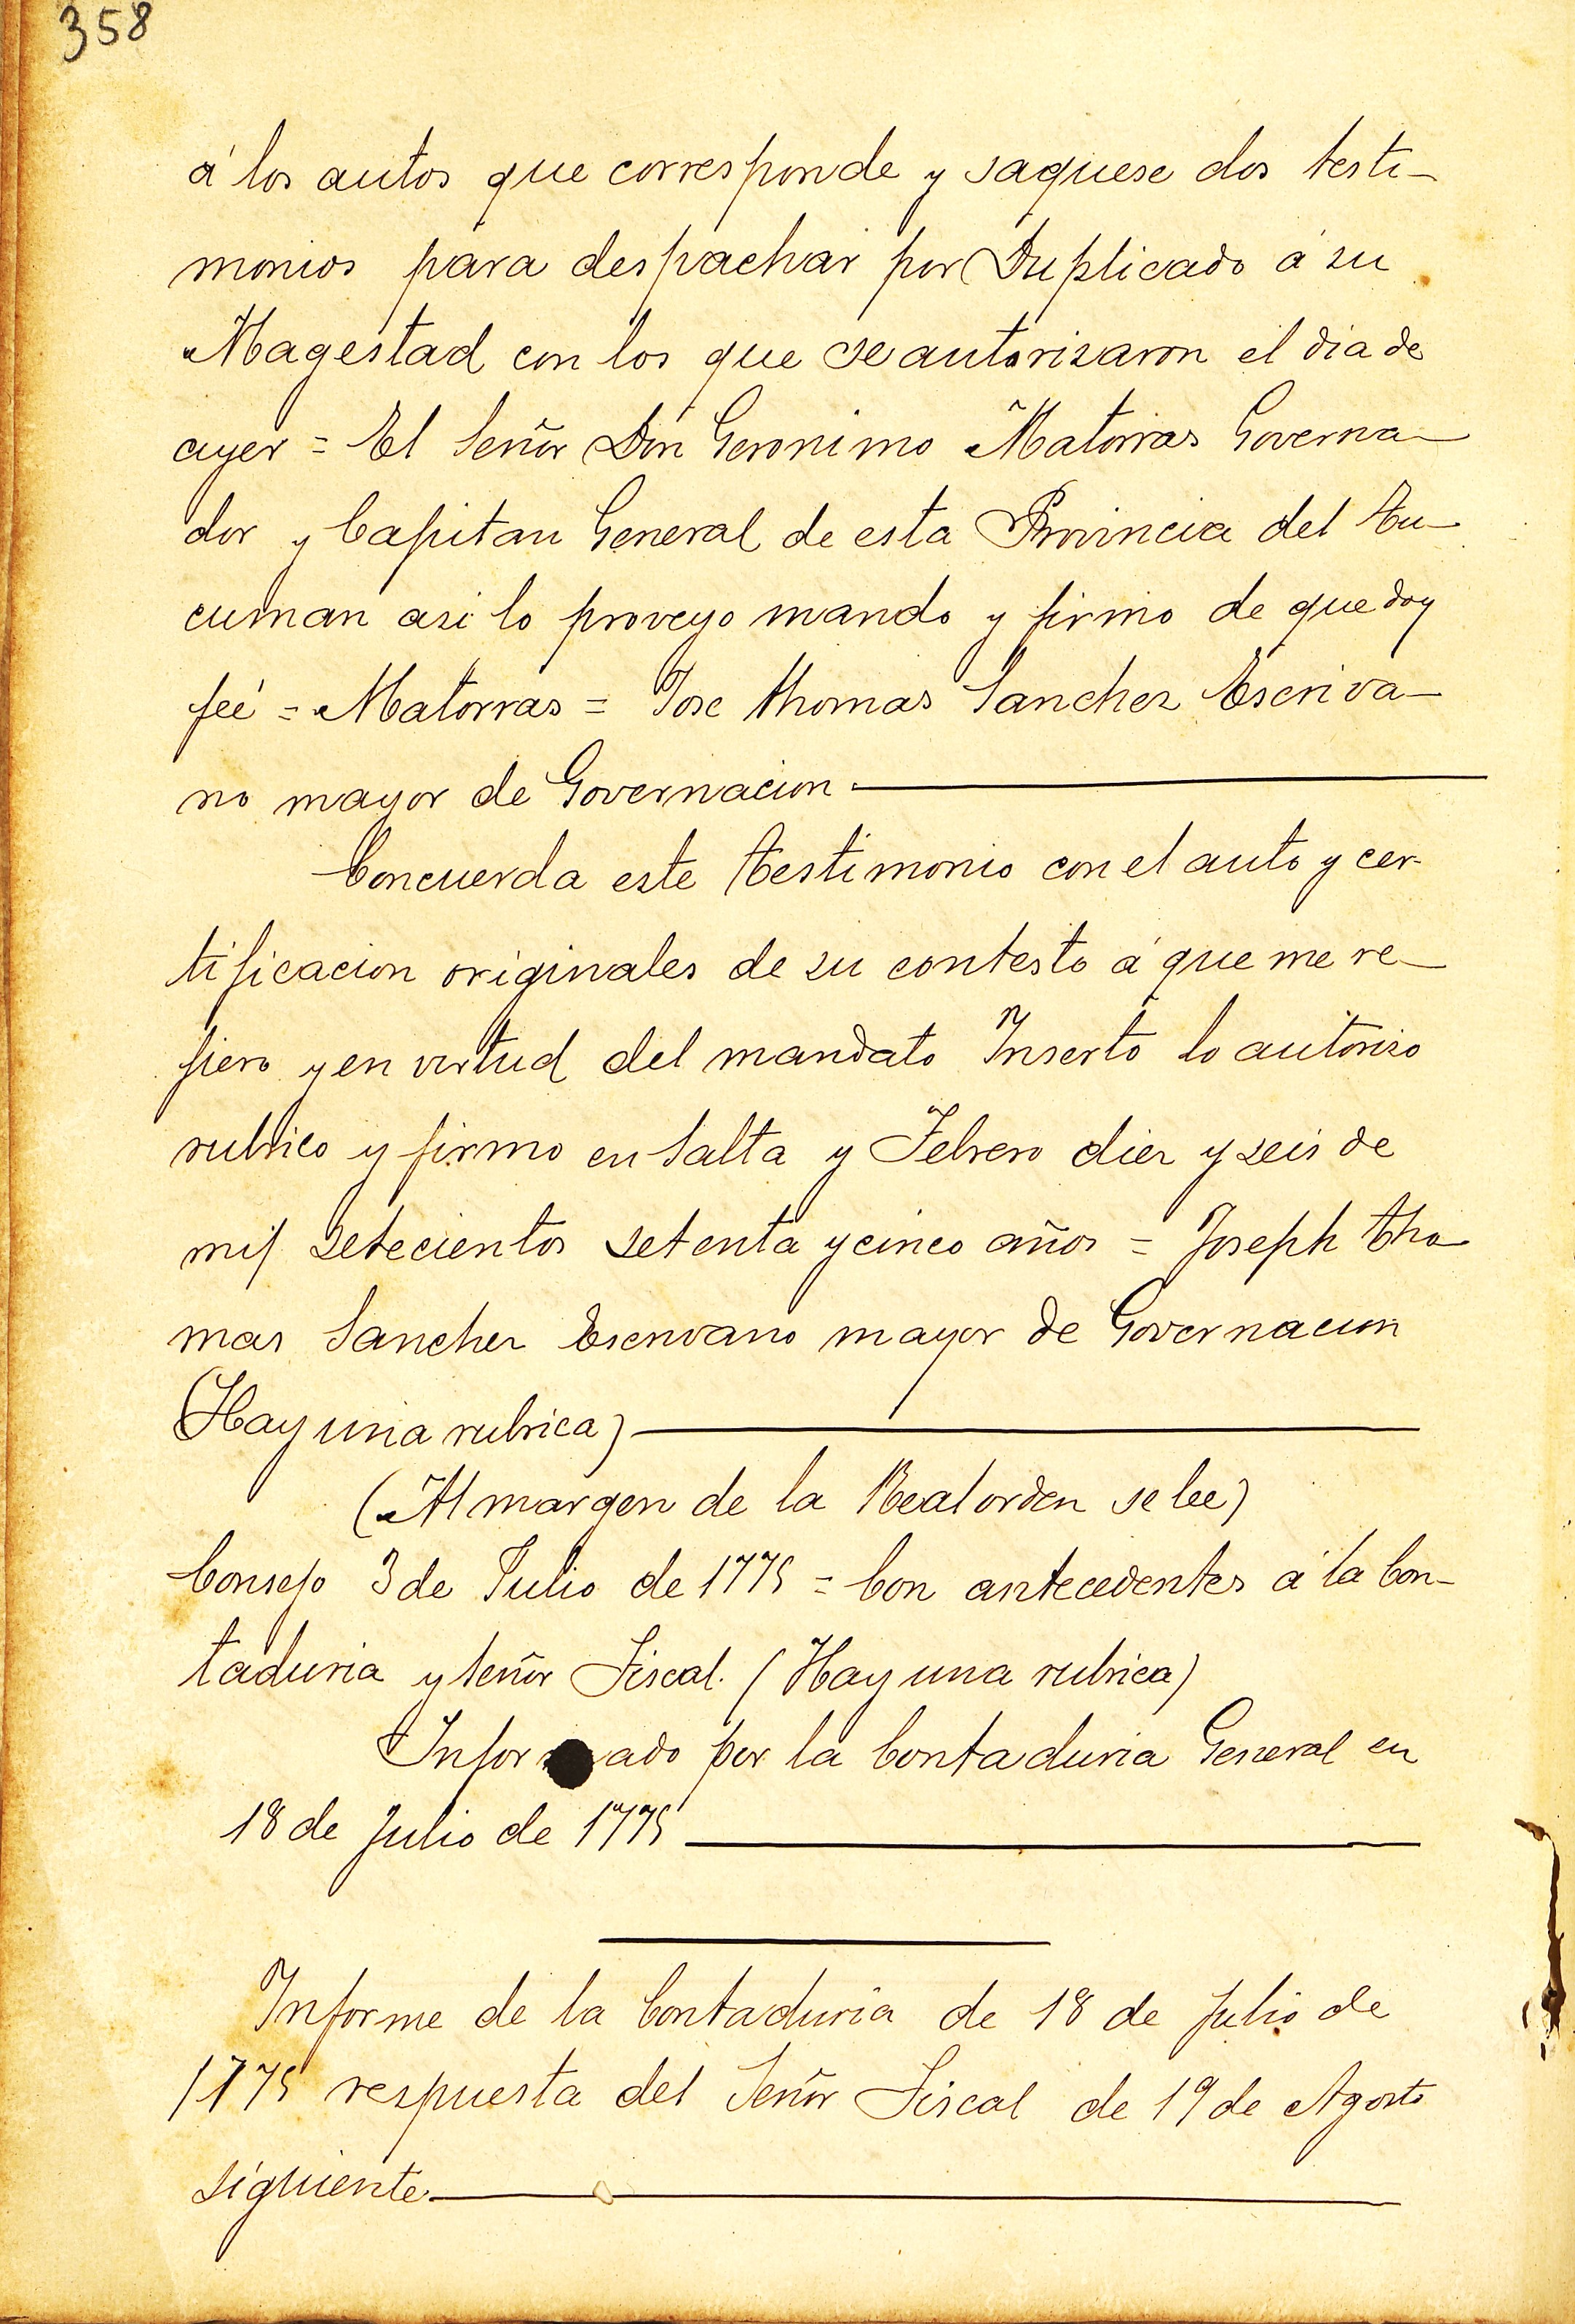 358
á los autos que corresponde y saquese dos testi-
monios para despachar por Duplicado á su
Magestad con los que se autorisaron el dia de
ayer = El Señor Don Geronimo Matorras Governa-
dor y Capitan General de esta Provincia del Tu-
cuman asi lo proveyo mando y firmo de que doy
feé = Matorras = Jose Thomas Sanchez Escriva-
no mayor de Governacion
Concuerda este Testimonio con el auto y cer-
tificacion originales de su contesto á que me re-
fiero y en virtud del mandato Inserto lo autoriso
rubrico y firmo en Salta y Febrero diez y seis de
mil setecientos setenta y cinco años = Joseph Tho-
mas Sanchez Escrivano mayor de Governacion
(Hay una rubrica)
(Al margen de la Real orden se lee)
Consejo 3 de Julio de 1775 = Con antecedentes á la Con-
taduria y Señor Fiscal. (Hay una rubrica)
Infor ado por la Contaduria General en
18 de Julio de 1775
Informe de la Contaduria de 18 de Julio de
1775 respuesta del Señor Fiscal de 19 de Agosto
siguiente